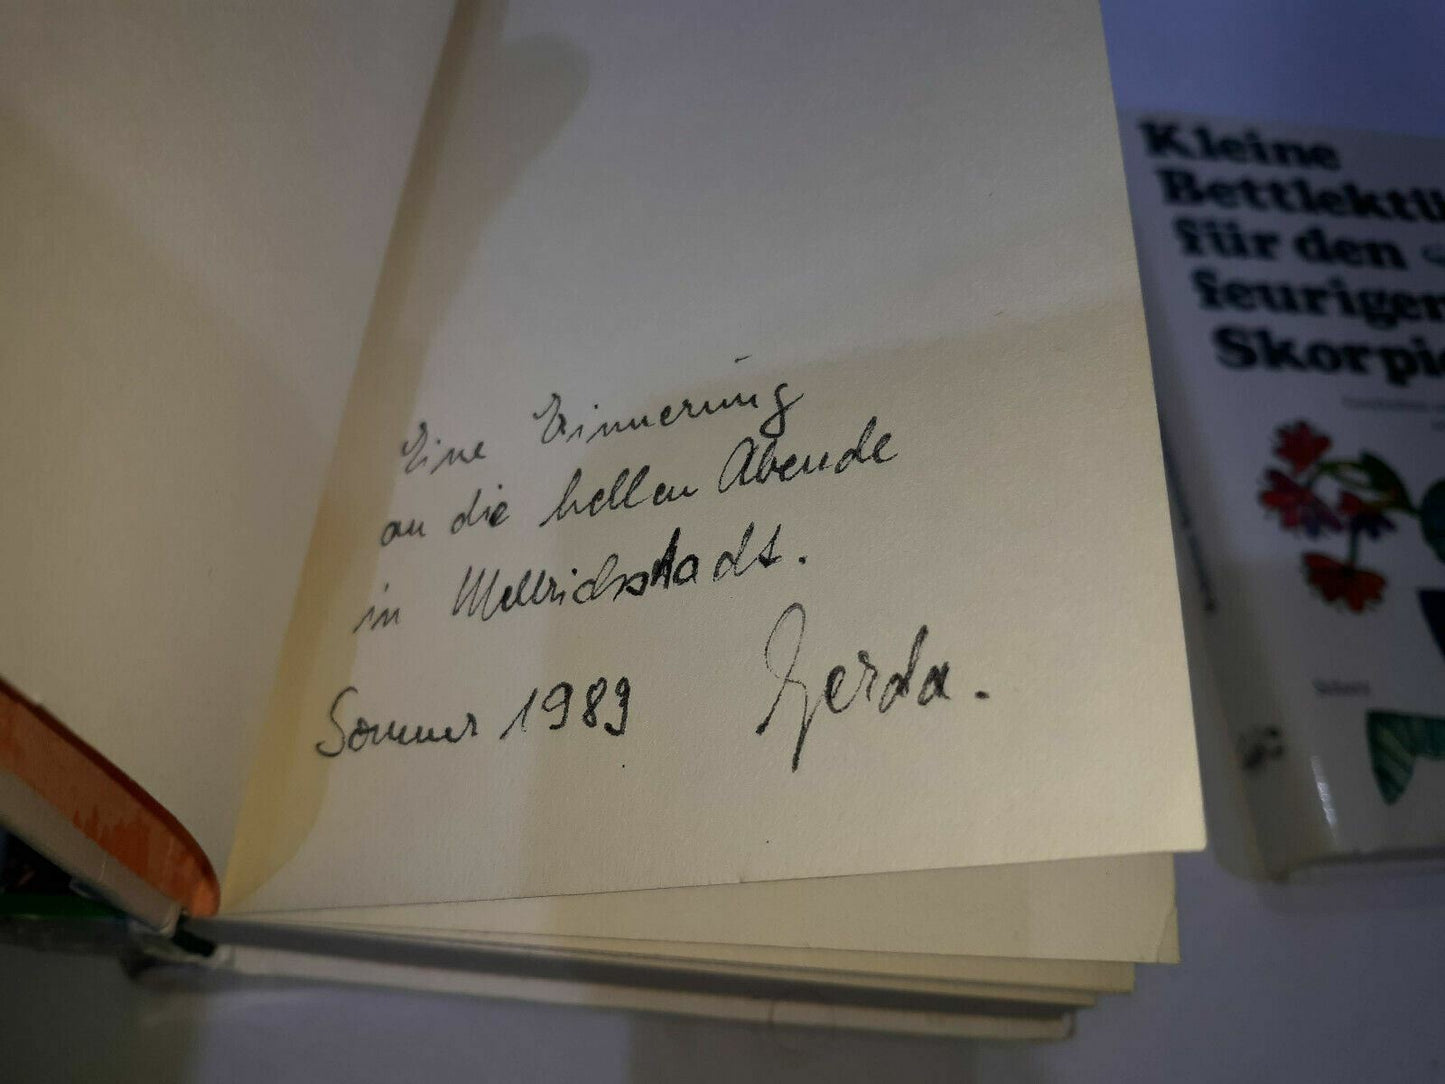 Eine Erinnerung
an die hellen Abende
in Mellrichstadt.
Sommer 1989
Gerda.
Kleine
Bettlektü
für den
feurigen
Skorpio